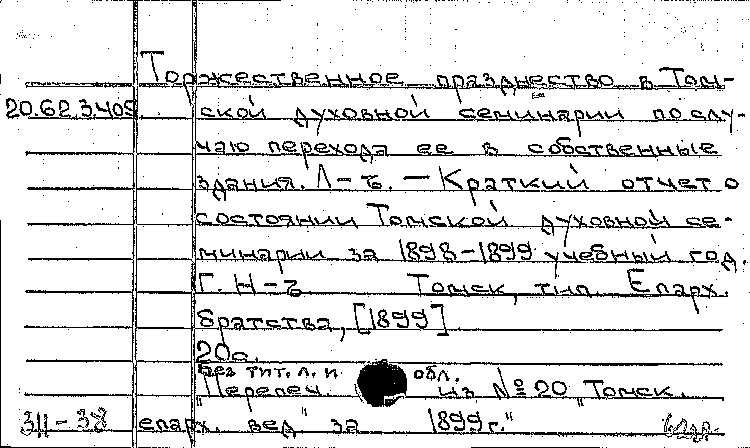 Торжественное празднество в Том-
20.62.3.405. ской духовной семинарии по слу-
чаю перехода ее в собственные
здания. Л-ъ. — Краткий отчет о
состоянии Томской духовной се-
минарии за 1898-1899 учебный год.
Г. Н-ъ Томск, тип. Епарх.
братства, [1899]
20с.
Без тит. л. и обл.
"Перепеч. из № 20 "Томск.
311-38 епарх. вед" за 1899г."